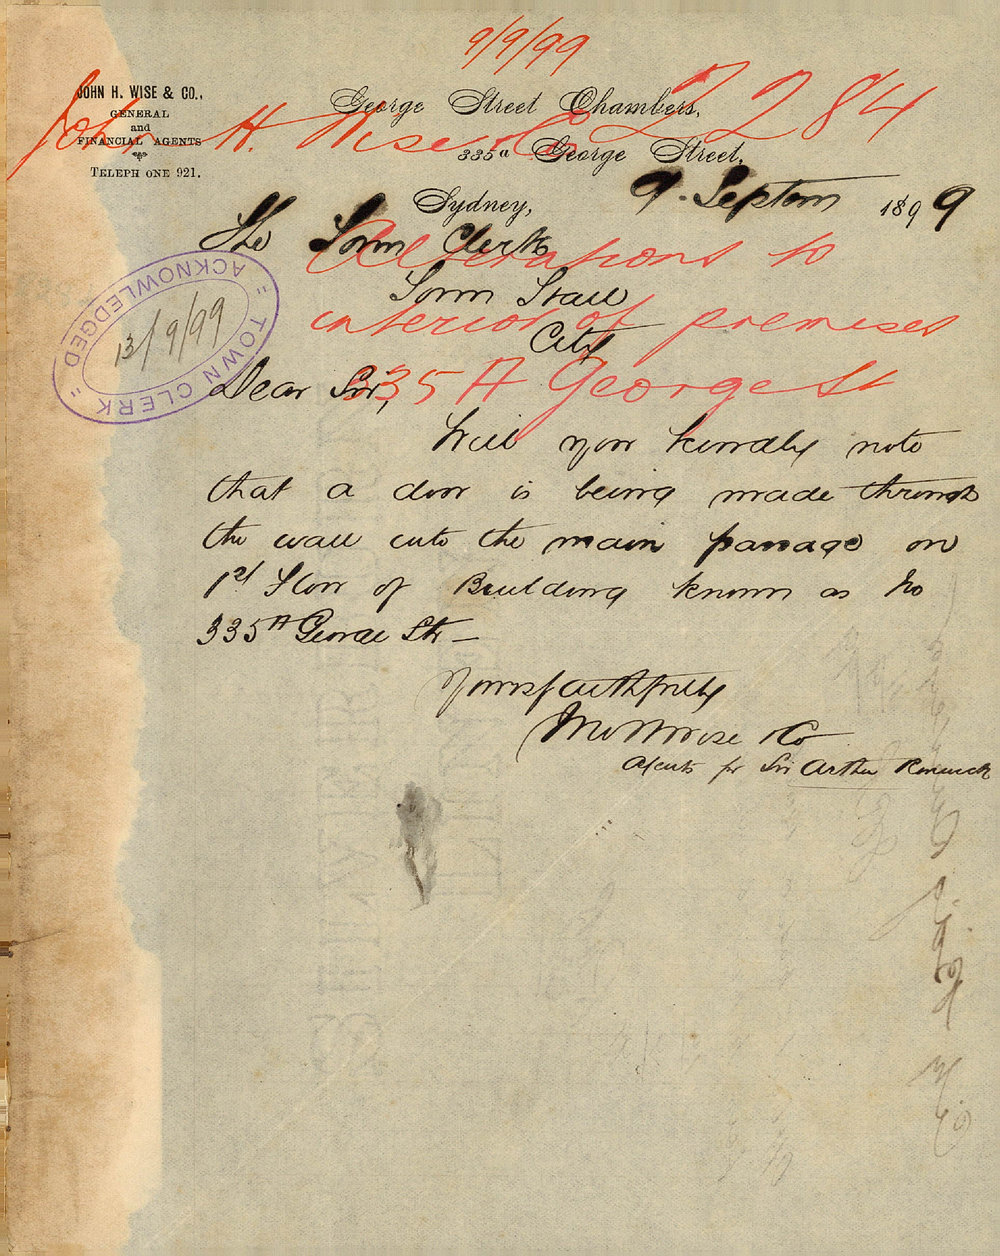 9/9/99
JOHN H. WISE & CO.,
GENERAL
and
FINANCIAL AGENTS
TELEPHONE 921.
George Street Chambers,
335a George Street,
Sydney, 9. Septem 1899
John H. Wise & Co 2284
Alterations to
interior of premises
335A George St
The Town Clerk
Town Hall
City
TOWN CLERK
ACKNOWLEDGED
13/9/99
Dear Sir,
Will you kindly note
that a door is being made through
the wall into the main passage on
1st Floor of Building known as No
335A George St —
Yours faithfully
Jno H Wise & Co
Agents for Sir Arthur Renwick